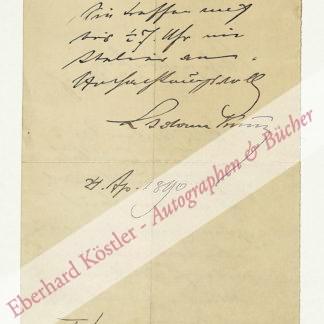 Sie treffen mich
bis ½7. Uhr im
Atelier an.
Hochachtungsvoll
24. Ap. 1890
Eberhard Köstler - Autographen & Bücher